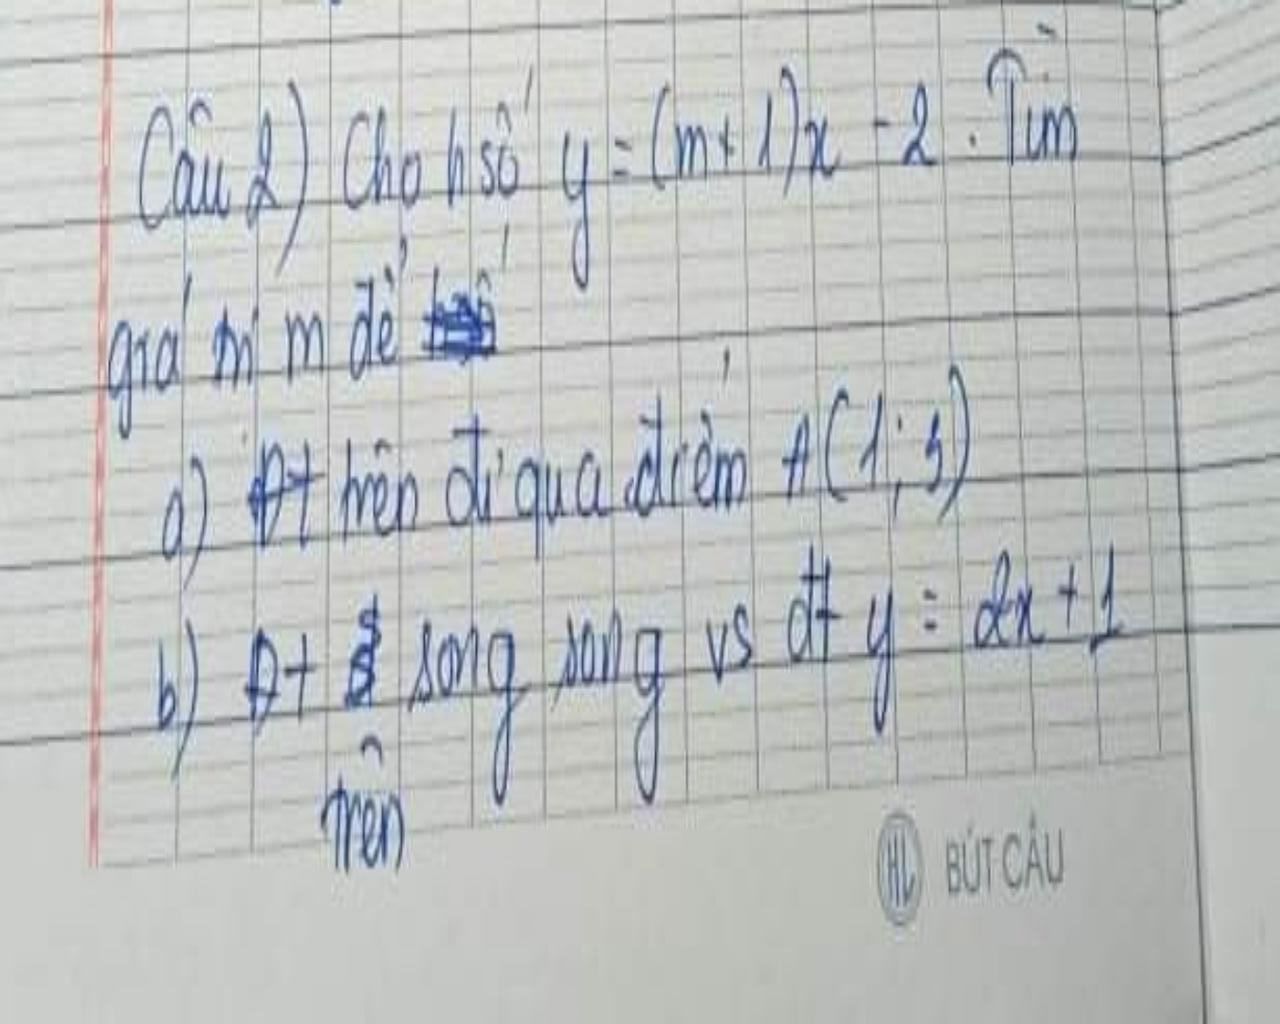 Câu 2) Cho h số y = (m+1)x - 2. Tìm
giá trị m để
a) Đt trên đi qua điểm A(1; 3)
b) Đt song song vs đt y = 2x + 1
trên
HL BÚT CÂU